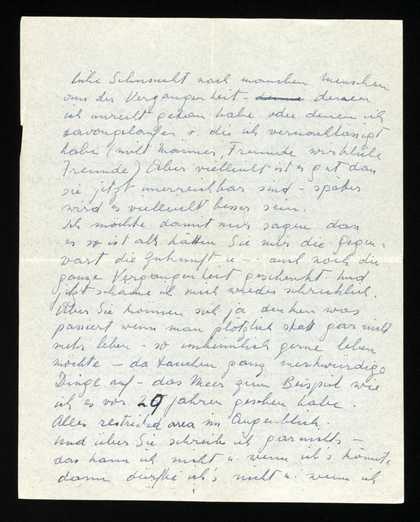 liebe Sehnsucht nach manchen Menschen
aus der Vergangenheit - denen
ich unrecht getan habe oder denen ich
davongelaufen u. die ich vernachlässigt
habe (nicht Männer, Freunde wirkliche
Freunde) Aber vielleicht ist es gut dass
sie jetzt unerreichbar sind - später
wird es vielleicht besser sein.
Ich möchte damit nur sagen dass
es so ist als hätten Sie mir die Gegen-
wart die Zukunft u - auch noch die
ganze Vergangenheit geschenkt und
jetzt schäme ich mich wieder schrecklich.
Aber Sie können sich ja denken was
passiert wenn man plötzlich statt gar nicht
mehr leben - so unheimlich gerne leben
möchte - da tauchen ganz merkwürdige
Dinge auf - das Meer zum Beispiel wie
ich es vor 20 Jahren gesehen habe.
Alles restricted area im Augenblick.
Und über Sie schreibe ich gar nichts -
das kann ich nicht u. wenn ich's könnte,
dann dürfte ich's nicht u. wenn ich